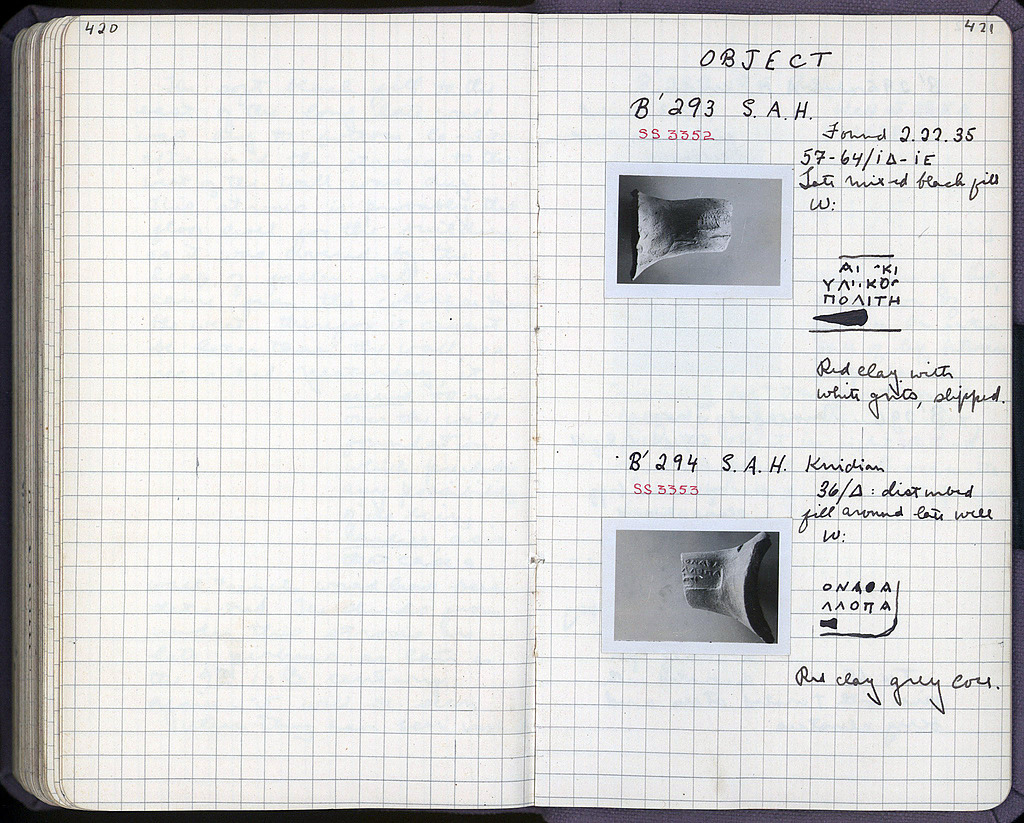 420
421
OBJECT
B' 293 S. A. H.
SS 3352
Found 2.22.35
57-64/ΙΔ-ΙΕ
Late mixed black fill
W:
ΑΙ ΚΙ
ΥΛΙ ΚΟС
ΠΟΛΙΤΗ
Red clay with
white grits, slipped.
B' 294 S. A. H. Knidian
SS 3353
36/Δ: disturbed
fill around late well
W:
ΟΝΑ Α
ΛΛΟΠΑ
Red clay grey core.